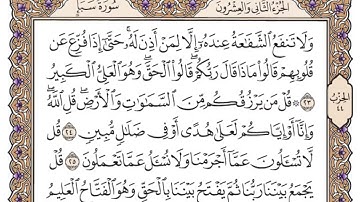 الجزء الثاني والعشرون
سورة سبأ
وَلَا تَنفَعُ ٱلشَّفَٰعَةُ عِندَهُۥٓ إِلَّا لِمَنْ أَذِنَ لَهُۥۚ حَتَّىٰٓ إِذَا فُزِّعَ عَن
قُلُوبِهِمْ قَالُوا۟ مَاذَا قَالَ رَبُّكُمْۖ قَالُوا۟ ٱلْحَقَّۖ وَهُوَ ٱلْعَلِىُّ ٱلْكَبِيرُ
٢٣ ۞ قُلْ مَن يَرْزُقُكُم مِّنَ ٱلسَّمَٰوَٰتِ وَٱلْأَرْضِۖ قُلِ ٱللَّهُۖ
وَإِنَّآ أَوْ إِيَّاكُمْ لَعَلَىٰ هُدًى أَوْ فِى ضَلَٰلٍ مُّبِينٍ ٢٤ قُل
لَّا تُسْـَٔلُونَ عَمَّآ أَجْرَمْنَا وَلَا نُسْـَٔلُ عَمَّا تَعْمَلُونَ ٢٥ قُلْ
يَجْمَعُ بَيْنَنَا رَبُّنَا ثُمَّ يَفْتَحُ بَيْنَنَا بِٱلْحَقِّ وَهُوَ ٱلْفَتَّاحُ ٱلْعَلِيمُ
الحزب
٤٤